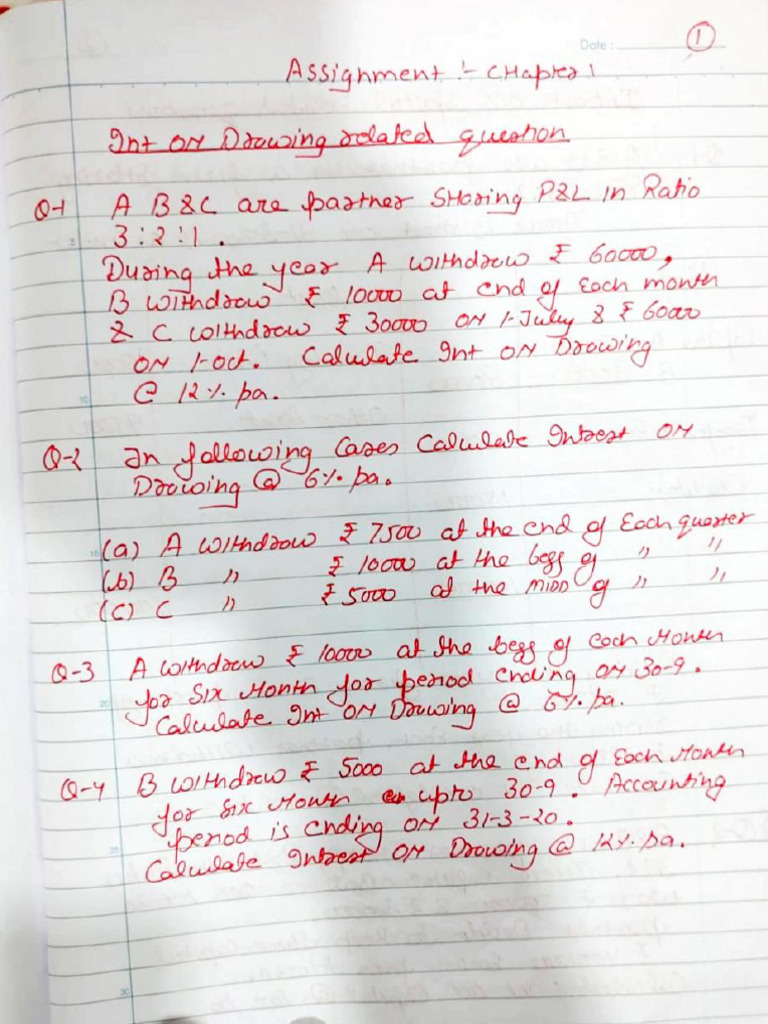 Date :
1
Assignment :- CHapter 1
Int on Drawing related question
Q-1 A B & C are partner SHaring P&L in Ratio
3 : 2 : 1 .
During the year A withdrew ₹ 60000,
B withdrew ₹ 10000 at end of Each month
& C withdrew ₹ 30000 on 1-July & ₹ 6000
on 1-Oct. Calculate Int on Drawing
@ 12 %. pa.
Q-2 In following Cases Calculate Interest on
Drawing @ 6 %. pa.
(a) A withdraw ₹ 7500 at the end of Each quarter
(b) B " ₹ 10000 at the begg of " "
(c) C " ₹ 5000 at the MIDD of " "
Q-3 A withdrew ₹ 10000 at the begg of each Month
for Six Month for period Ending on 30-9 .
Calculate Int on Drawing @ 6 %. pa.
Q-4 B withdrew ₹ 5000 at the end of Each Month
for Six Month upto 30-9 . Accounting
period is Ending on 31-3-20 .
Calculate Interest on Drawing @ 12 %. pa.